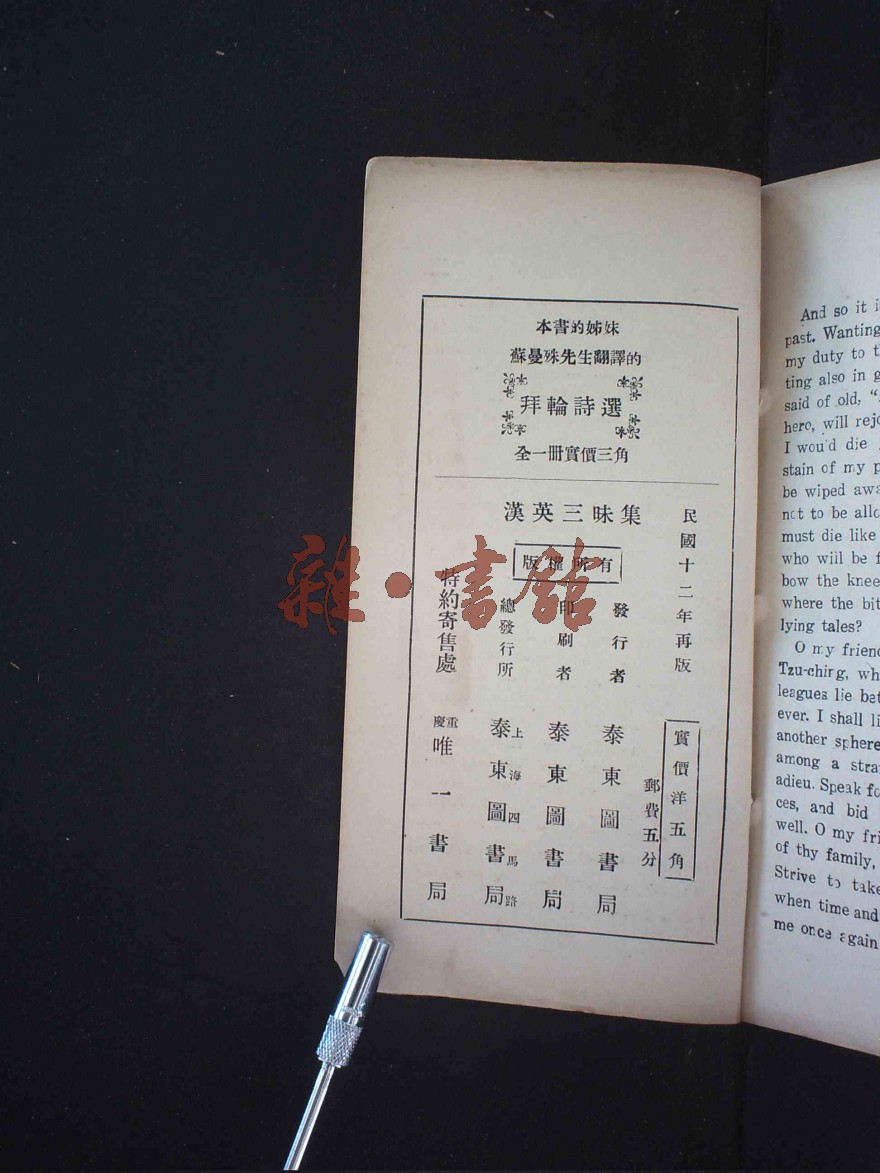 本書的姊妹
蘇曼殊先生翻譯的
拜輪詩選
全一冊實價三角
漢英三昧集
民國十二年再版
版權所有
實價洋五角
郵費五分
發行者
泰東圖書局
印刷者
泰東圖書局
總發行所
上海四馬路
泰東圖書局
特約寄售處
重慶
唯一書局
雜·書館
And so it i
past. Wanting
my duty to t
ting also in g
said of old,
hero, will rejo
I wou'd die
stain of my p
be wiped awa
not to be allo
must die like
who will be f
bow the knee
where the bit
lying tales?
O my friend
Tzu-ching, wh
leagues lie bet
ever. I shall li
another sphere
among a stra
adieu. Speak fo
ces, and bid
well. O my fri
of thy family,
Strive to take
when time and
me once again